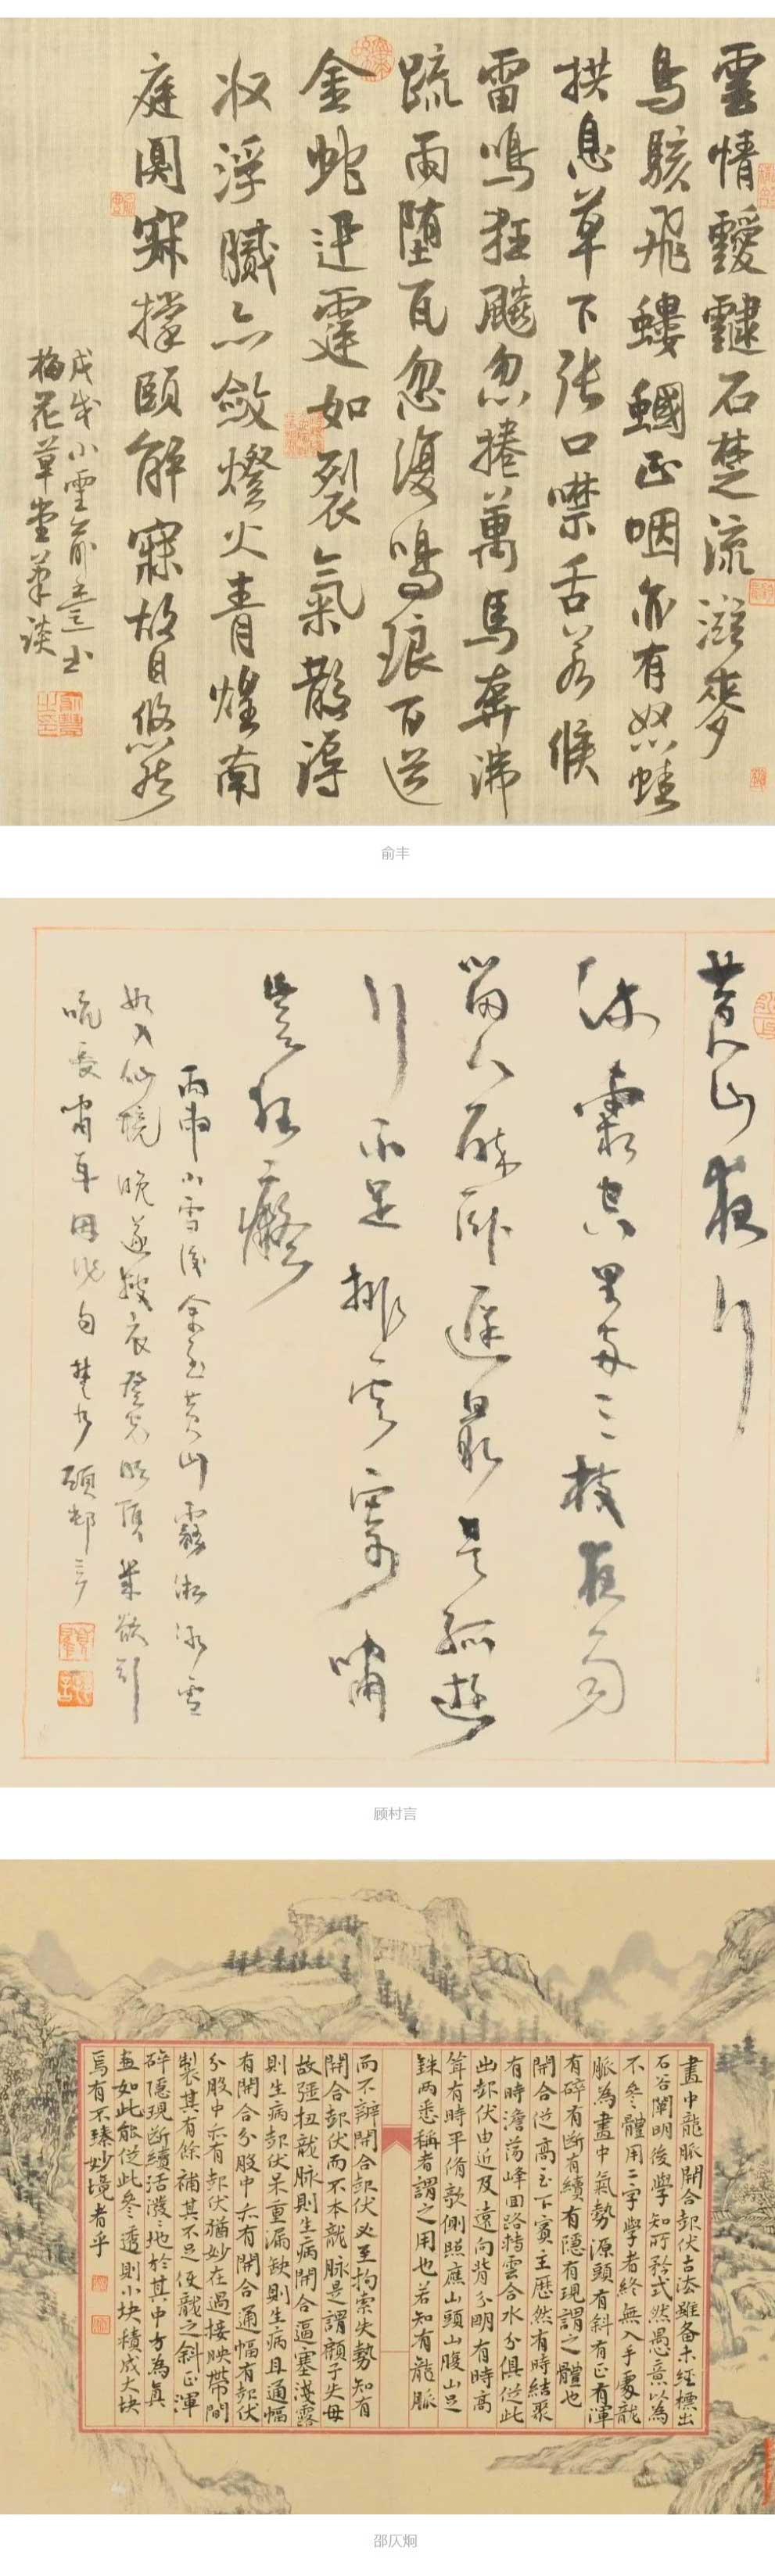 雲情靉靆石楚流滋麥
鳥駭飛螻蟈正咽亦有怒蛙
拱息草下张口噤舌若候
雷鳴狂飈忽捲萬馬奔沸
疏雨堕瓦忽復鳴琅百道
金蛇迅霆如裂氣散得
收浮臟亦斂燈火青煌南
庭闃寂撑頤解寐故自悠然
戊戌小雪俞豊書
梅花草堂筆谈
俞丰
黄山夜行
冰霧空里兩三枝夜月
留人醉卧遲最是孤遊
行不足排雲寄嘯
豈狂癡
丙申小雪後余至黄山霧淞冰雪
如入仙境晚遂披衣登光明頂幾欲引
吭長嘯 因成句 顧邨言
顾村言
畫中龍脈開合起伏古法雖备未經標出
石谷闡明後學知所矜式然愚意以為
不參體用二字學者終無入手處龍
脈為畫中氣勢源頭有斜有正有渾
有碎有断有續有隱有現謂之體也
開合從高至下賓主歷然有時結聚
有時澹蕩峰回路轉雲合水分俱從此
出起伏由近及遠向背分明有時高
聳有時平脩欹側照應山頭山腹山足
銖兩悉稱者謂之用也若知有龍脈
而不辨開合起伏必至拘索失勢知有
開合起伏而不本龍脈是謂顧子失母
故强扭龍脈則生病開合逼塞淺露
則生病起伏呆重漏缺則生病且通幅
有開合分股中亦有開合通幅有起伏
分股中亦有起伏猶妙在過接映帶間
製其有餘補其不足使龍之斜正渾
碎隱現断續活潑潑地於其中方為真
畫如此能從此參透則小块積成大块
焉有不臻妙境者乎
邵仄炯